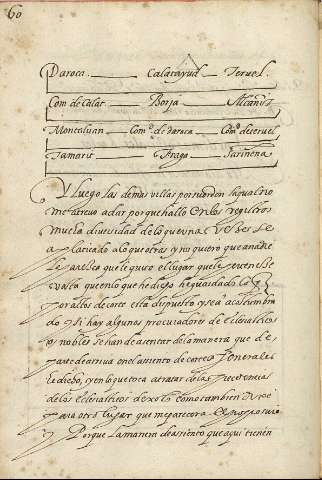 60
Daroca. Calatayud Teruel.
Com. de Calat. Borja Alcañis
Montalvan Com.d de daroca Com.d de teruel
Tamarit Fraga Sariñena
Y luego las demas villas por su orden la qual no
me atrevo a dar por que hallo en los registros
mucha diversidad de lo que una vez se
a platicado a lo que otras y no quiero que a nadie
le paresca que le quito el lugar que le
basta que en lo que he dicho he guardado lo q
por actos de corte esta dispuesto y se a acostumbra
do y si hay algunos procuradores de eclesiasticos
o nobles se han de asentar de la manera que
arriva en el asiento de cortes Generales
he dicho, y en lo que toca a tratar de las precedencias
de los eclesiasticos dexo lo como tambien
para otro lugar que me parecera
Porque la manera de asiento que aqui tienen